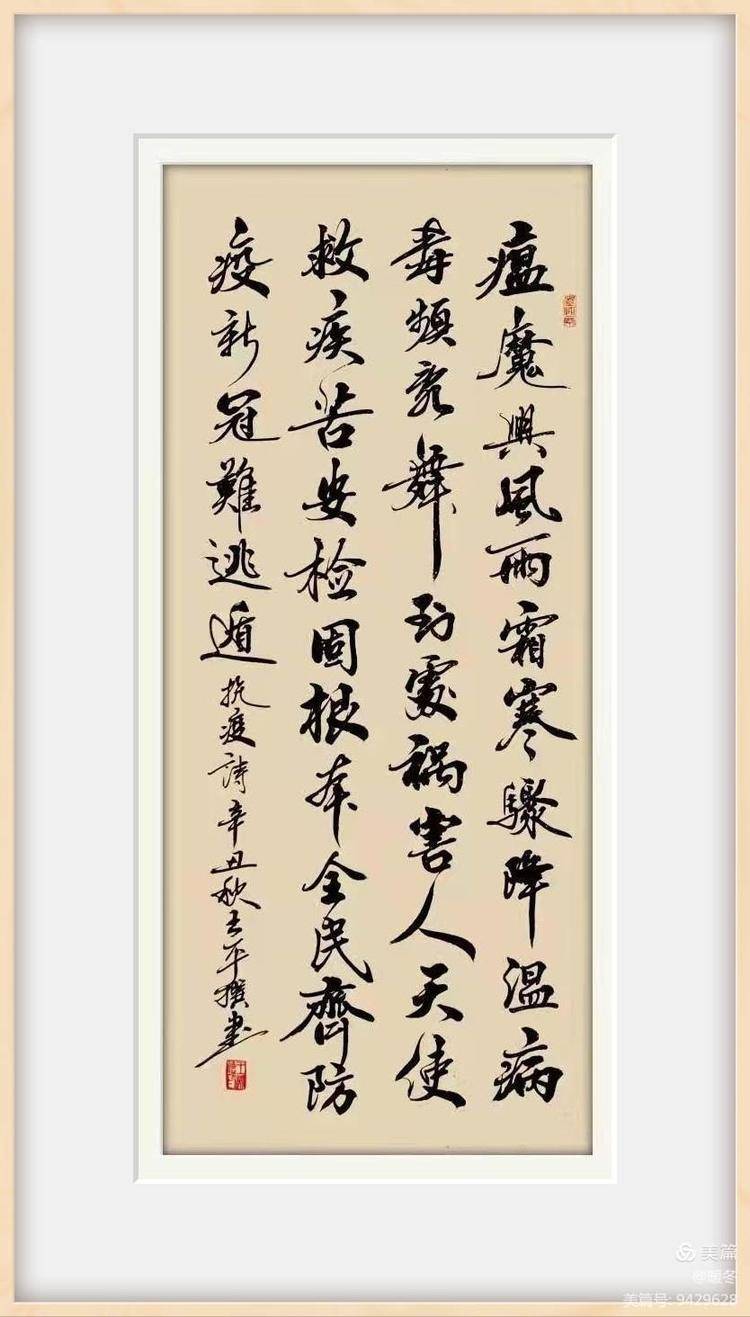 瘟魔興風雨霜寒驟降溫病
毒頻舞到處禍害人天使
救疾苦安检固根本全民齊防
疫新冠難逃遁 抗疫詩辛丑秋王平撰書
美篇
@暖冬
美篇号: 9429628